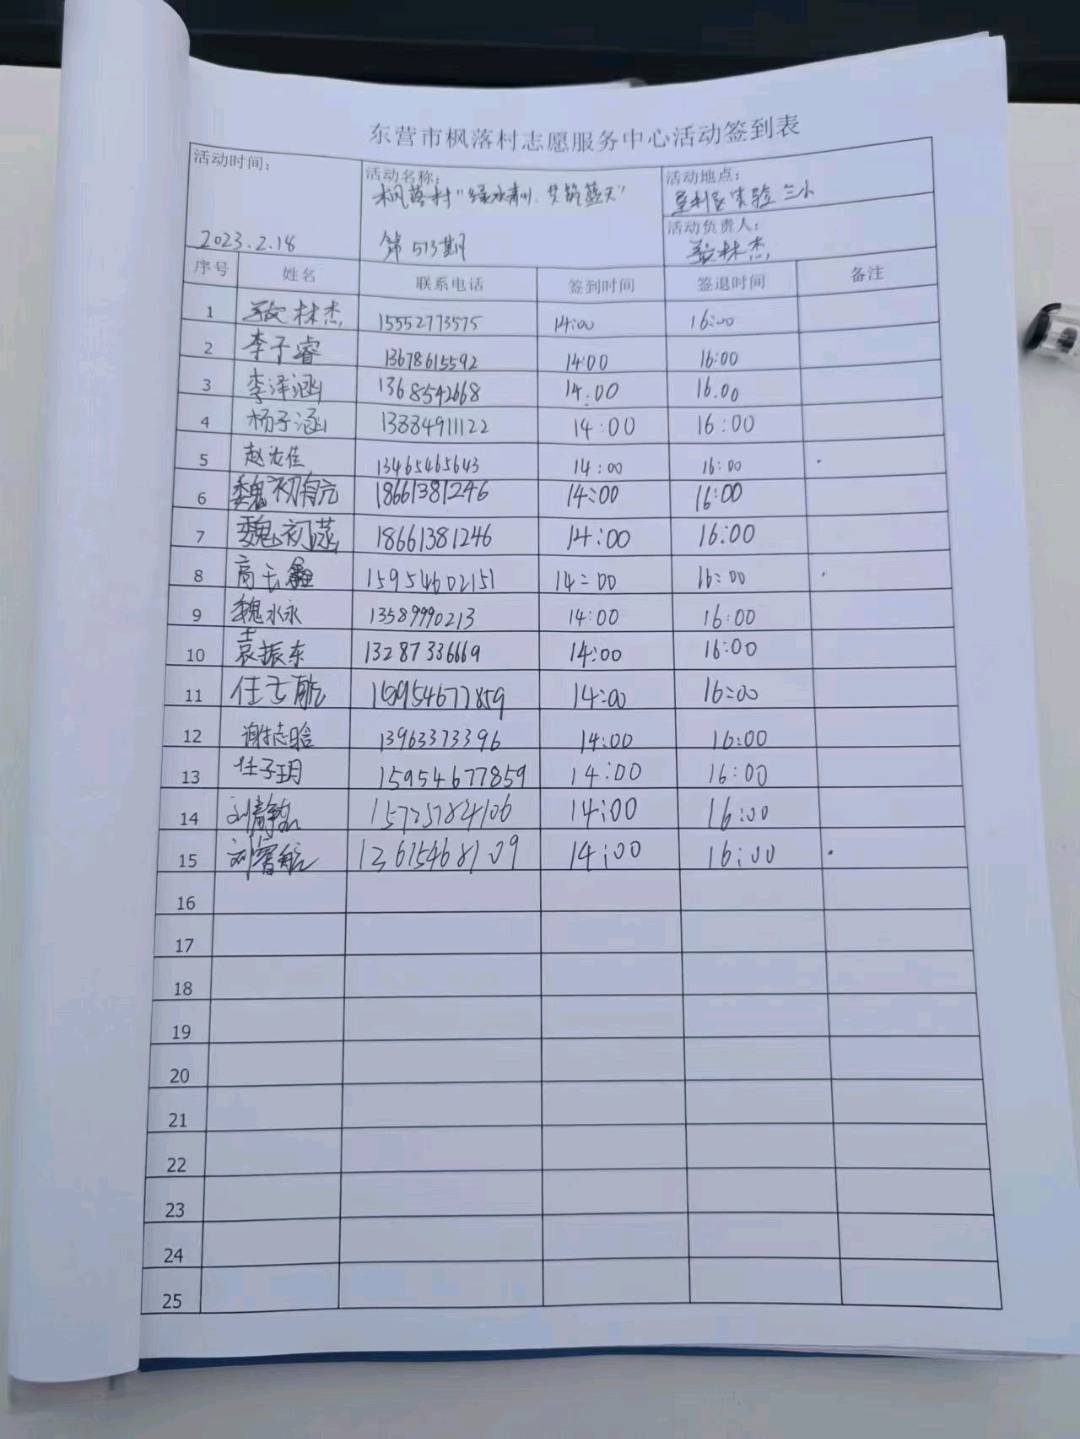 东营市枫落村志愿服务中心活动签到表
活动时间: 活动名称: 活动地点:
枫落村"绿水青山,共筑蓝天" 垦利区实验三小
活动负责人:
2023.2.18 第513期 林杰
序号 姓名 联系电话 签到时间 签退时间 备注
1 林杰 15552773575 14:00 16:00
2 李子睿 13678615592 14:00 16:00
3 李泽涵 1368542668 14:00 16.00
4 杨子涵 13884911122 14:00 16:00
5 赵 佳 13465465643 14:00 16:00
6 魏初 18661381246 14:00 16:00
7 魏初 18661381246 14:00 16:00
8 商 15954602151 14:00 16:00
9 魏水永 13589990213 14:00 16:00
10 袁振东 13287336669 14:00 16:00
11 任子航 15954677859 14:00 16:00
12 谢志晗 13963373396 14:00 16:00
13 任子玥 15954677859 14:00 16:00
14 刘静 15725784106 14:00 16:00
15 刘睿航 13615468109 14:00 16:00
16
17
18
19
20
21
22
23
24
25